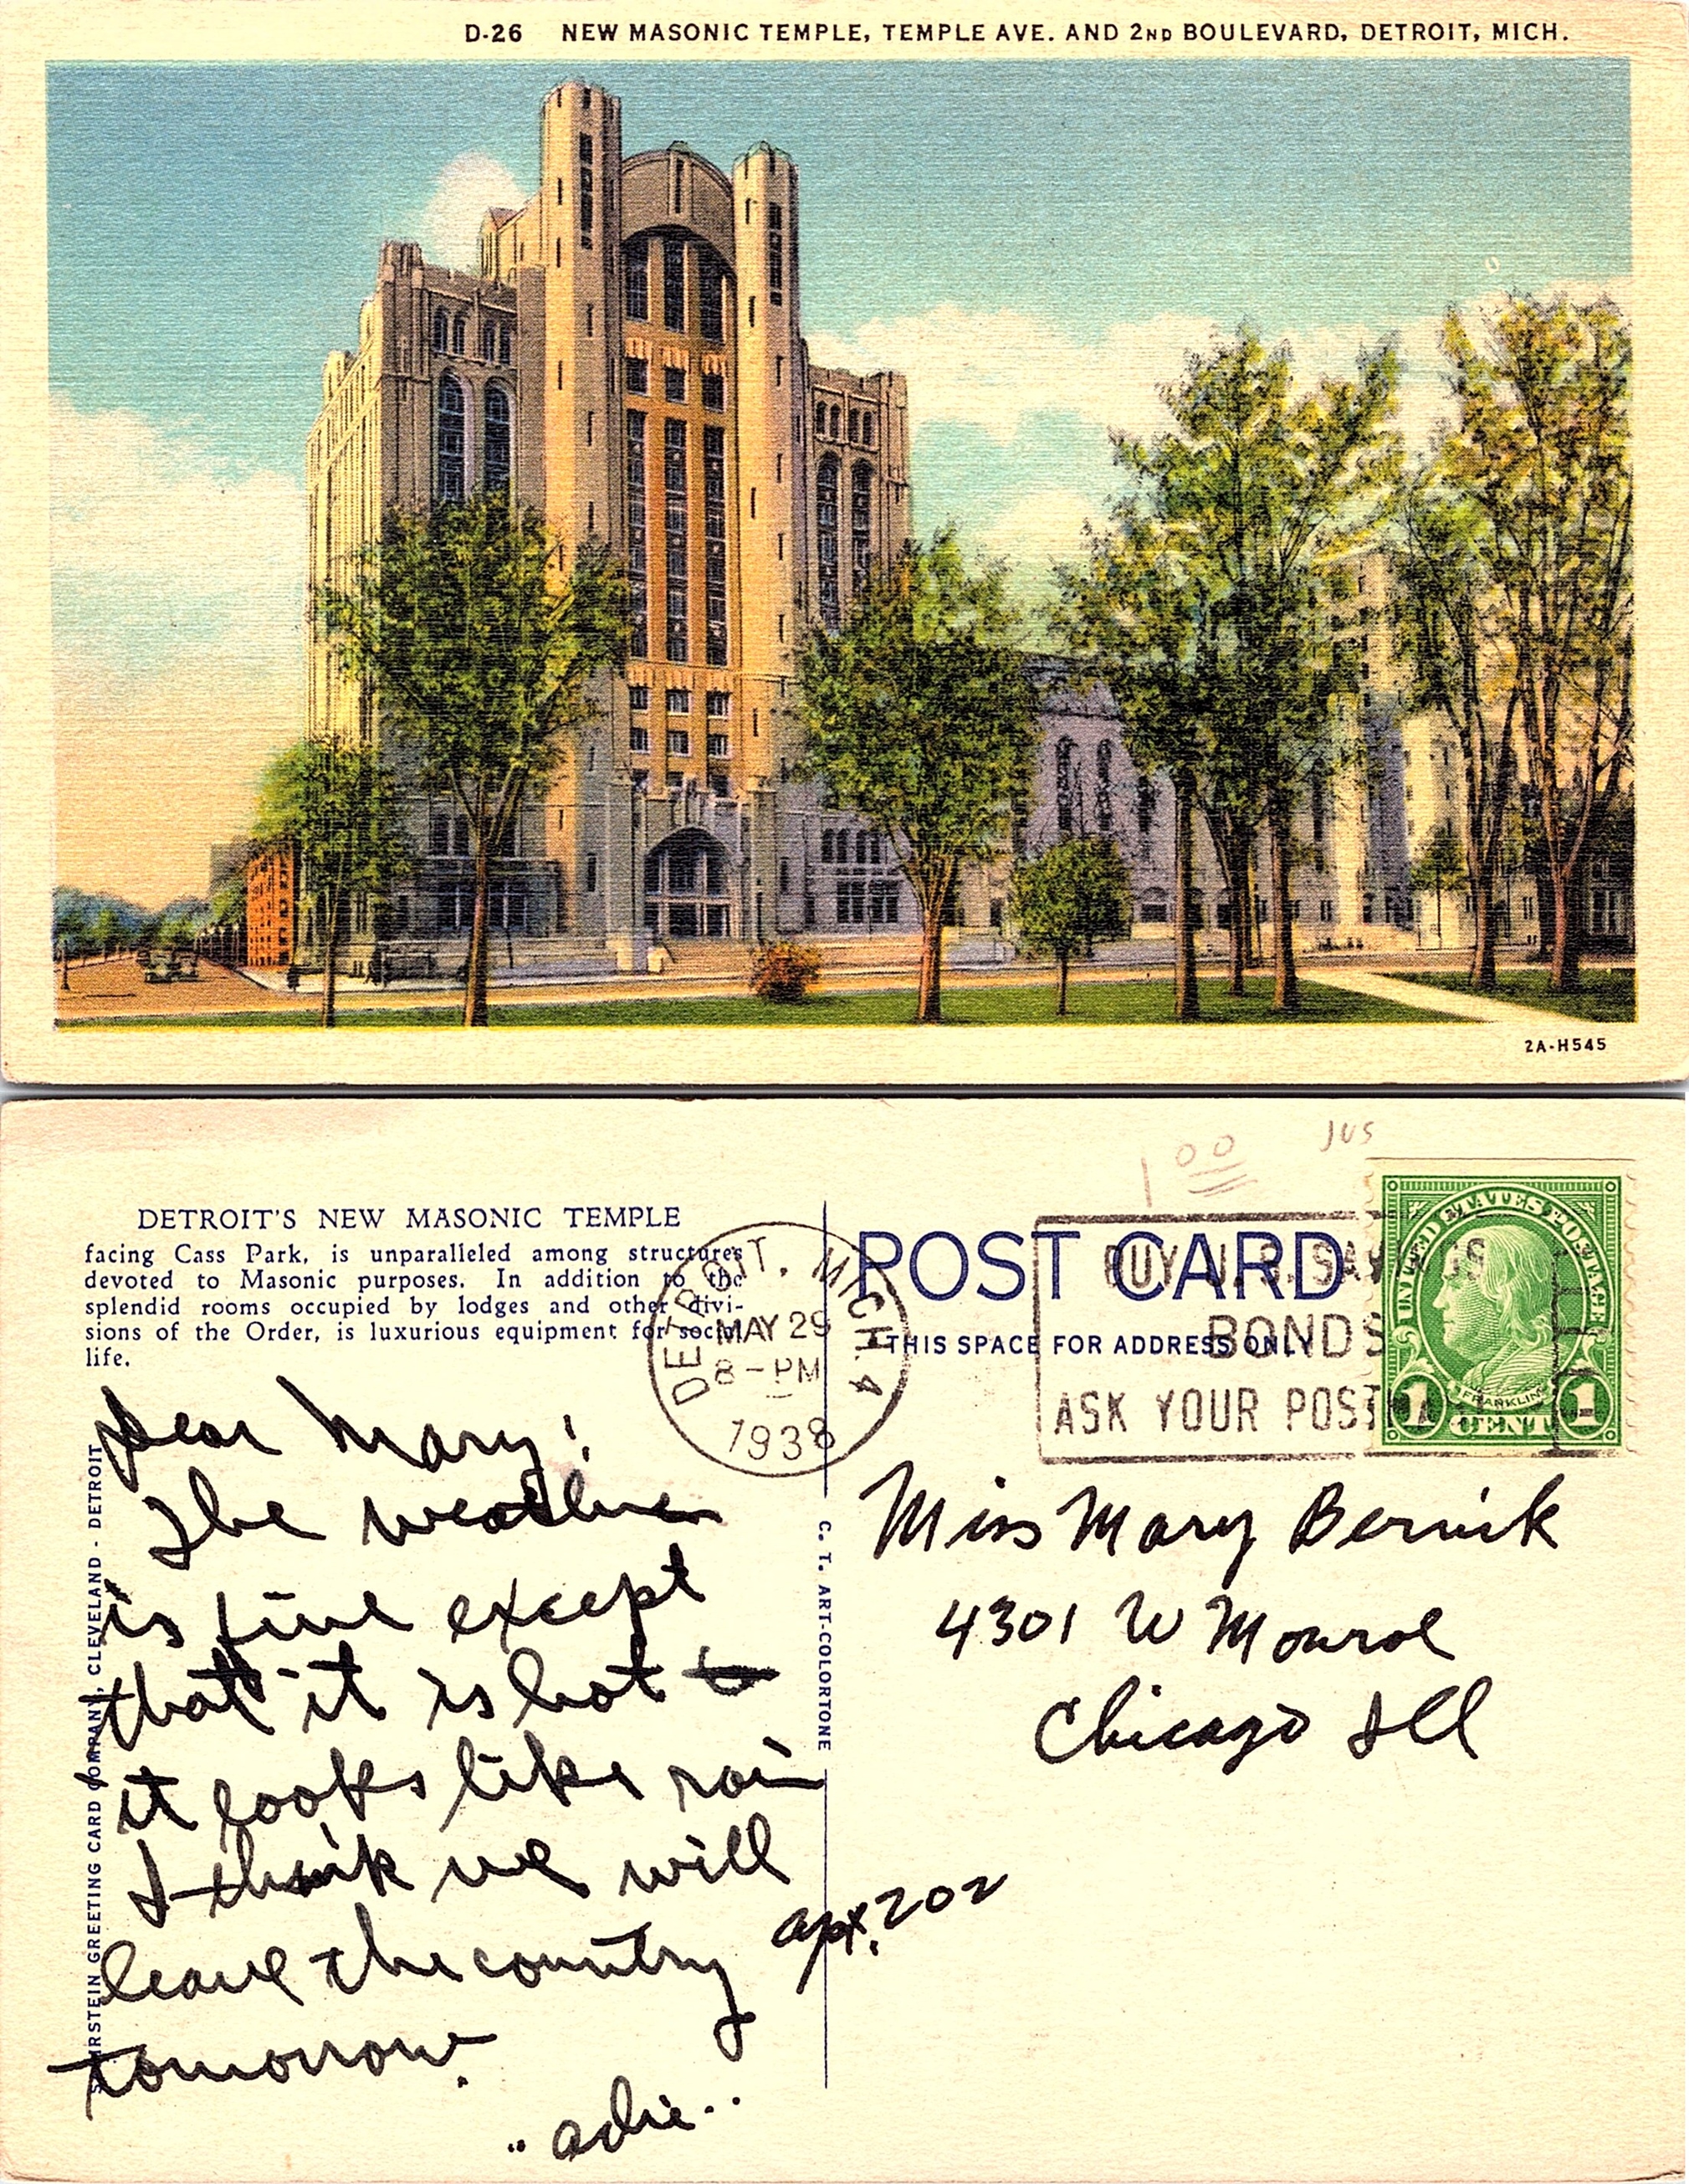 D-26 NEW MASONIC TEMPLE, TEMPLE AVE. AND 2ND BOULEVARD, DETROIT, MICH.
2A-H545
DETROIT'S NEW MASONIC TEMPLE
facing Cass Park, is unparalleled among structures
devoted to Masonic purposes. In addition to the
splendid rooms occupied by lodges and other divi-
sions of the Order, is luxurious equipment for social
life.
DETROIT, MICH. 4
MAY 29
8-PM
1938
1 00
JUS
POST CARD
THIS SPACE FOR ADDRESS ONLY
BUY U.S. SAVINGS
BONDS
ASK YOUR POST
UNITED STATES POSTAGE
FRANKLIN
1 CENT 1
Dear Mary:
The weather
is fine except
that it is hot
it looks like rain
I think we will
leave the country
tomorrow.
"adie..
Miss Mary Bernik
4301 W Monroe
Chicago Ill
apt. 202
GREETING CARD COMPANY, CLEVELAND - DETROIT
C. T. ART-COLORTONE